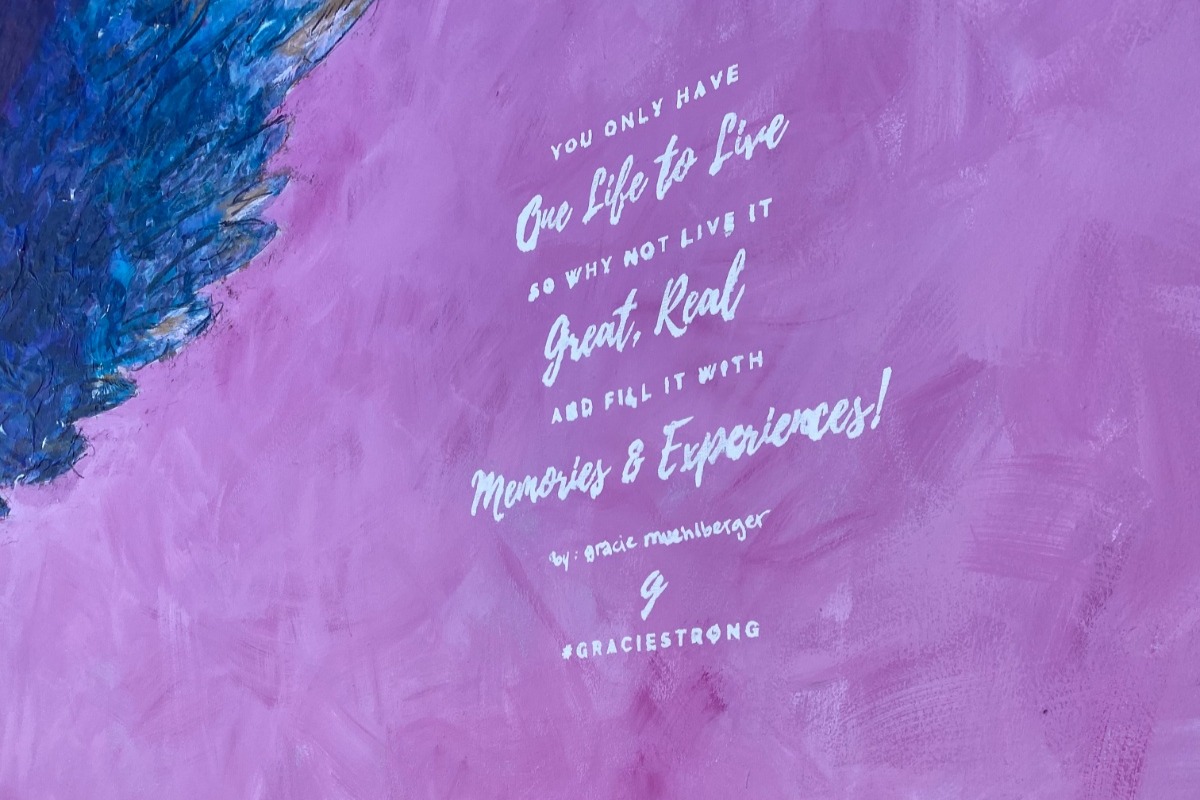 YOU ONLY HAVE
One Life to Live
SO WHY NOT LIVE IT
Great, Real
AND FILL IT WITH
Memories & Experiences!
by: gracie muehlberger
g
#GRACIESTRONG